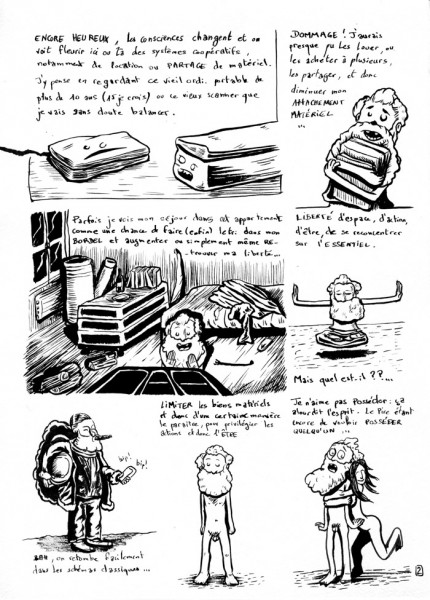 ENCORE HEUREUX, les consciences changent et on
voit fleurir ici ou là des systèmes coopératifs,
notamment de location ou PARTAGE de matériel.
J'y pense en regardant ce vieil ordi. portable de
plus de 10 ans (15 je crois) ou ce vieux scanner que
je vais sans doute balancer.
DOMMAGE ! J'aurais
presque pu les louer, ou
les acheter à plusieurs,
les partager, et donc
diminuer mon
ATTACHEMENT
MATÉRIEL
...
Parfois je vois mon séjour dans cet appartement
comme une chance de faire (enfin) le tri dans mon
BORDEL et augmenter ou simplement même RE-
-trouver ma liberté...
LIBERTÉ d'espace, d'action,
d'être, de se recentrer
sur l'ESSENTIEL.
Mais quel est-il ??...
LIMITER les biens matériels
et donc d'une certaine manière
le paraître, pour privilégier les
actions et donc l'ÊTRE
Je n'aime pas Posséder : ça
alourdit l'esprit. Le Pire étant
encore de vouloir POSSÉDER
QUELQU'UN...
bip!
bip!
, on retombe facilement
dans les schémas classiques...
2